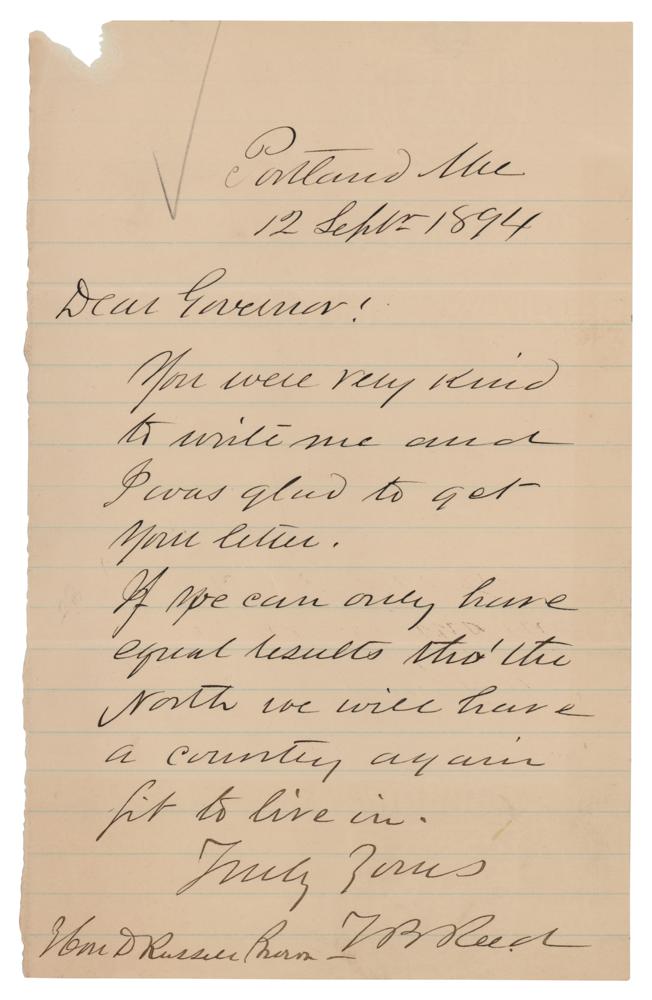 Portland Me
12 Septr 1894
Dear Governor!
You were very kind
to write me and
I was glad to get
your letter.
If we can only have
equal results tho' the
North we will have
a country again
fit to live in.
Truly Yours
T B Reed
Hon D Russell Brown